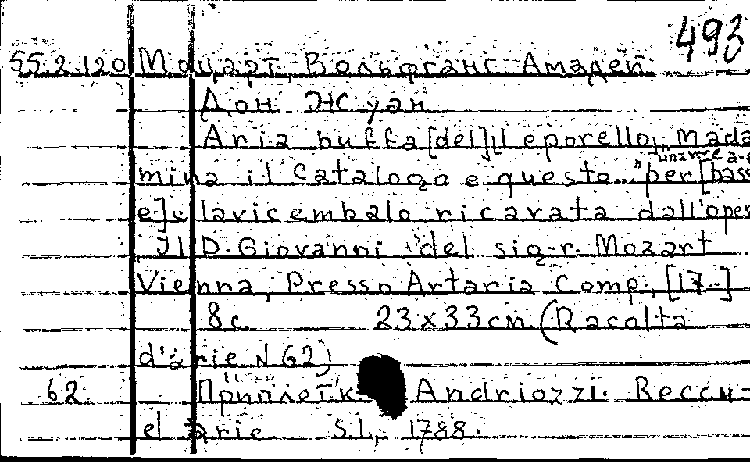 493
55.2.120 Моцарт, Вольфганг Амадей
Дон Жуан
Aria buffa [del] Leporello „Mada
mina il Catalogo e questo..." per [bass
e] clavicembalo ricavata dall'oper
Il D. Giovanni del sig-r. Mozart
Vienna, Presso Artaria Comp., [17-]
8 с. 23x33 cm. (Racolta
d'arie N 62)
62. Приплетк Andriozzi. Reccu-
el arie S.l., 1788.